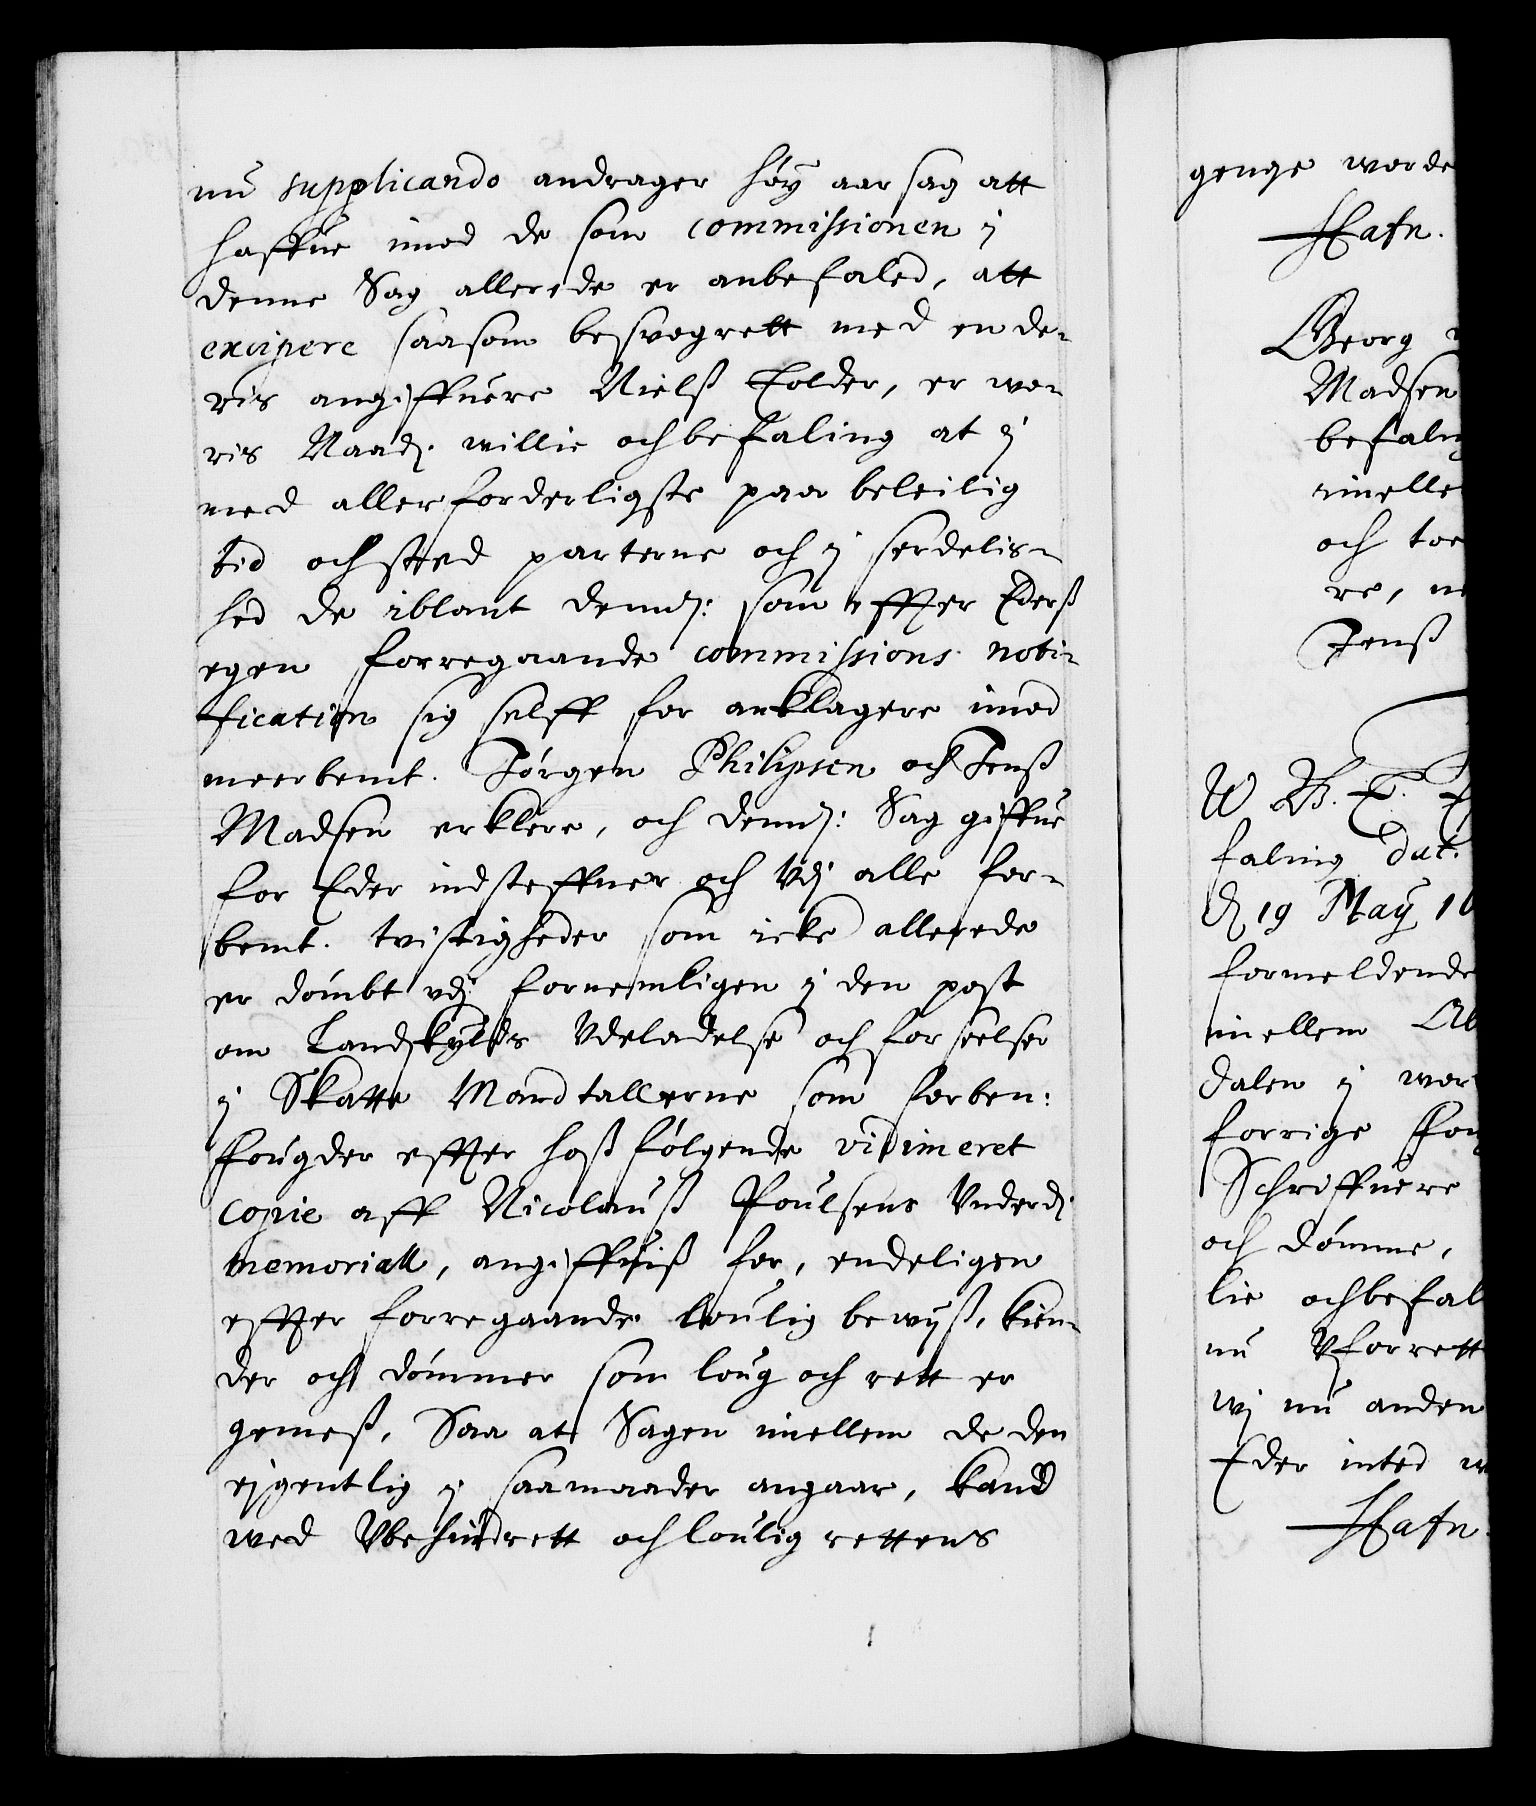 nu supplicando andrager höy aarsag att
haffue imod de som commissionen i
denne Sag allerede er anbefaled, att
excipere saasom besvogrett med en de-
ris angiffuere Nielß Tolder, er wo-
ris Naad. willie och befaling at i
med allerforderligste paa beleilig
tid och sted parterne och i serdelis-
hed de iblant dennd: som effter Ederß
egen forregaande commissions noti-
fication sig selff for anklagere imod
meerbemt. Jörgen Philipsen och Jenß
Madsen erklere, och dennd: Sag giffue
for Eder indsteffner och Vdj alle for-
bemt. tvistigheder som icke allerede
er dömbt vdj fornemligen i den post
om Landskylds Vdeladelse och forseelser
i Skatte Mandtallerne som forben:
fougder effter hoßfölgende vidimeret
copie aff Nicolauß Poulsens Vnderd
memoriall, angiffuiß for, endeligen
effter forregaande louglig bewyß, kien-
der och dömmer som loug och rett er
gemeß, Saa at Sagen imellem de den
ejgentlig i saamaader angaar, kand
wed Vbehindrett och loulig rettens
genge worde
Hafn.
Georg
Madsen
befaling
imelle
och to
re,
Jenß
W G. T.
faling dat:
d 19 May 16
formeldende
imellem
dalen i wor
forrige Fou
Schriffuere
och dömme,
lie och befal
nu Vforrett
wj nu anden
Eder inted
Hafn.